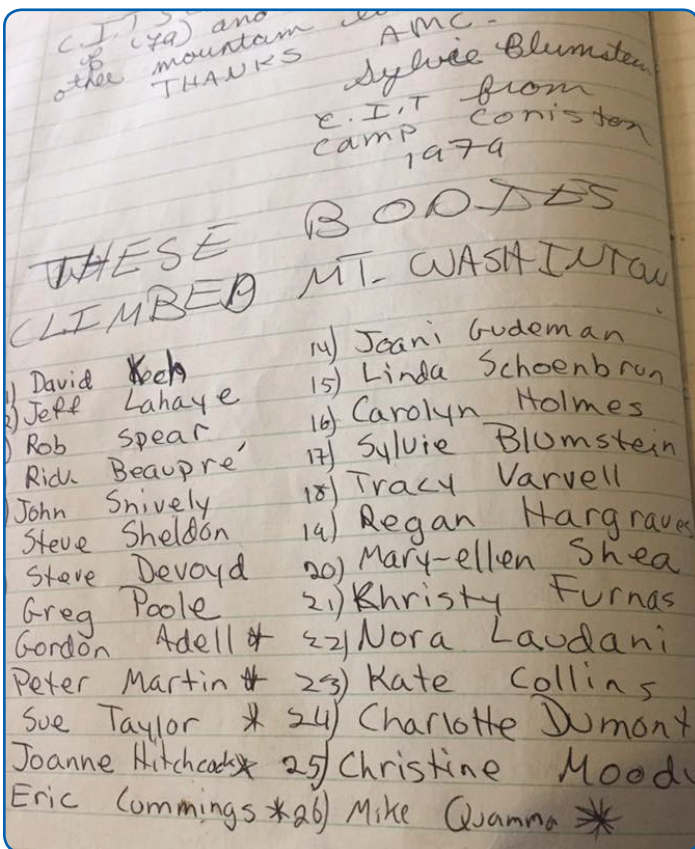 C.I.T
of (79) and
other mountain
THANKS AMC.
Sylvie Blumstein
C.I.T from
Camp Coniston
1979
THESE BODIES
CLIMBED MT. WASHINTON
1) David Koch
2) Jeff Lahaye
) Rob Spear
Rick Beaupré
John Snively
Steve Sheldon
Steve Devoyd
Greg Poole
Gordon Adell *
Peter Martin *
Sue Taylor *
Joanne Hitchcock *
Eric Cummings *
14) Joani Gudeman
15) Linda Schoenbrun
16) Carolyn Holmes
17) Sylvie Blumstein
18) Tracy Varvell
19) Regan Hargraves
20) Mary-ellen Shea
21) Khristy Furnas
22) Nora Laudani
23) Kate Collins
24) Charlotte Dumont
25) Christine Moody
26) Mike Quamma *